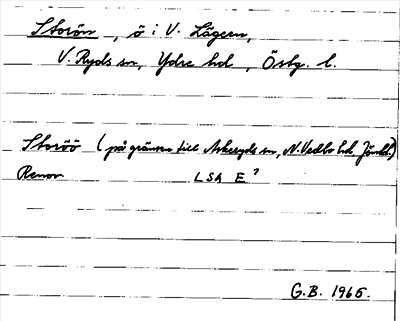 Storön, ö i V. Lägern,
V. Ryds sn, Ydre hd, Östg. l.
Storöö (på gränsen till Askeryds sn, N. Vedbo hd Jönk.l.)
Renov LSA E ?
G.B. 1965.